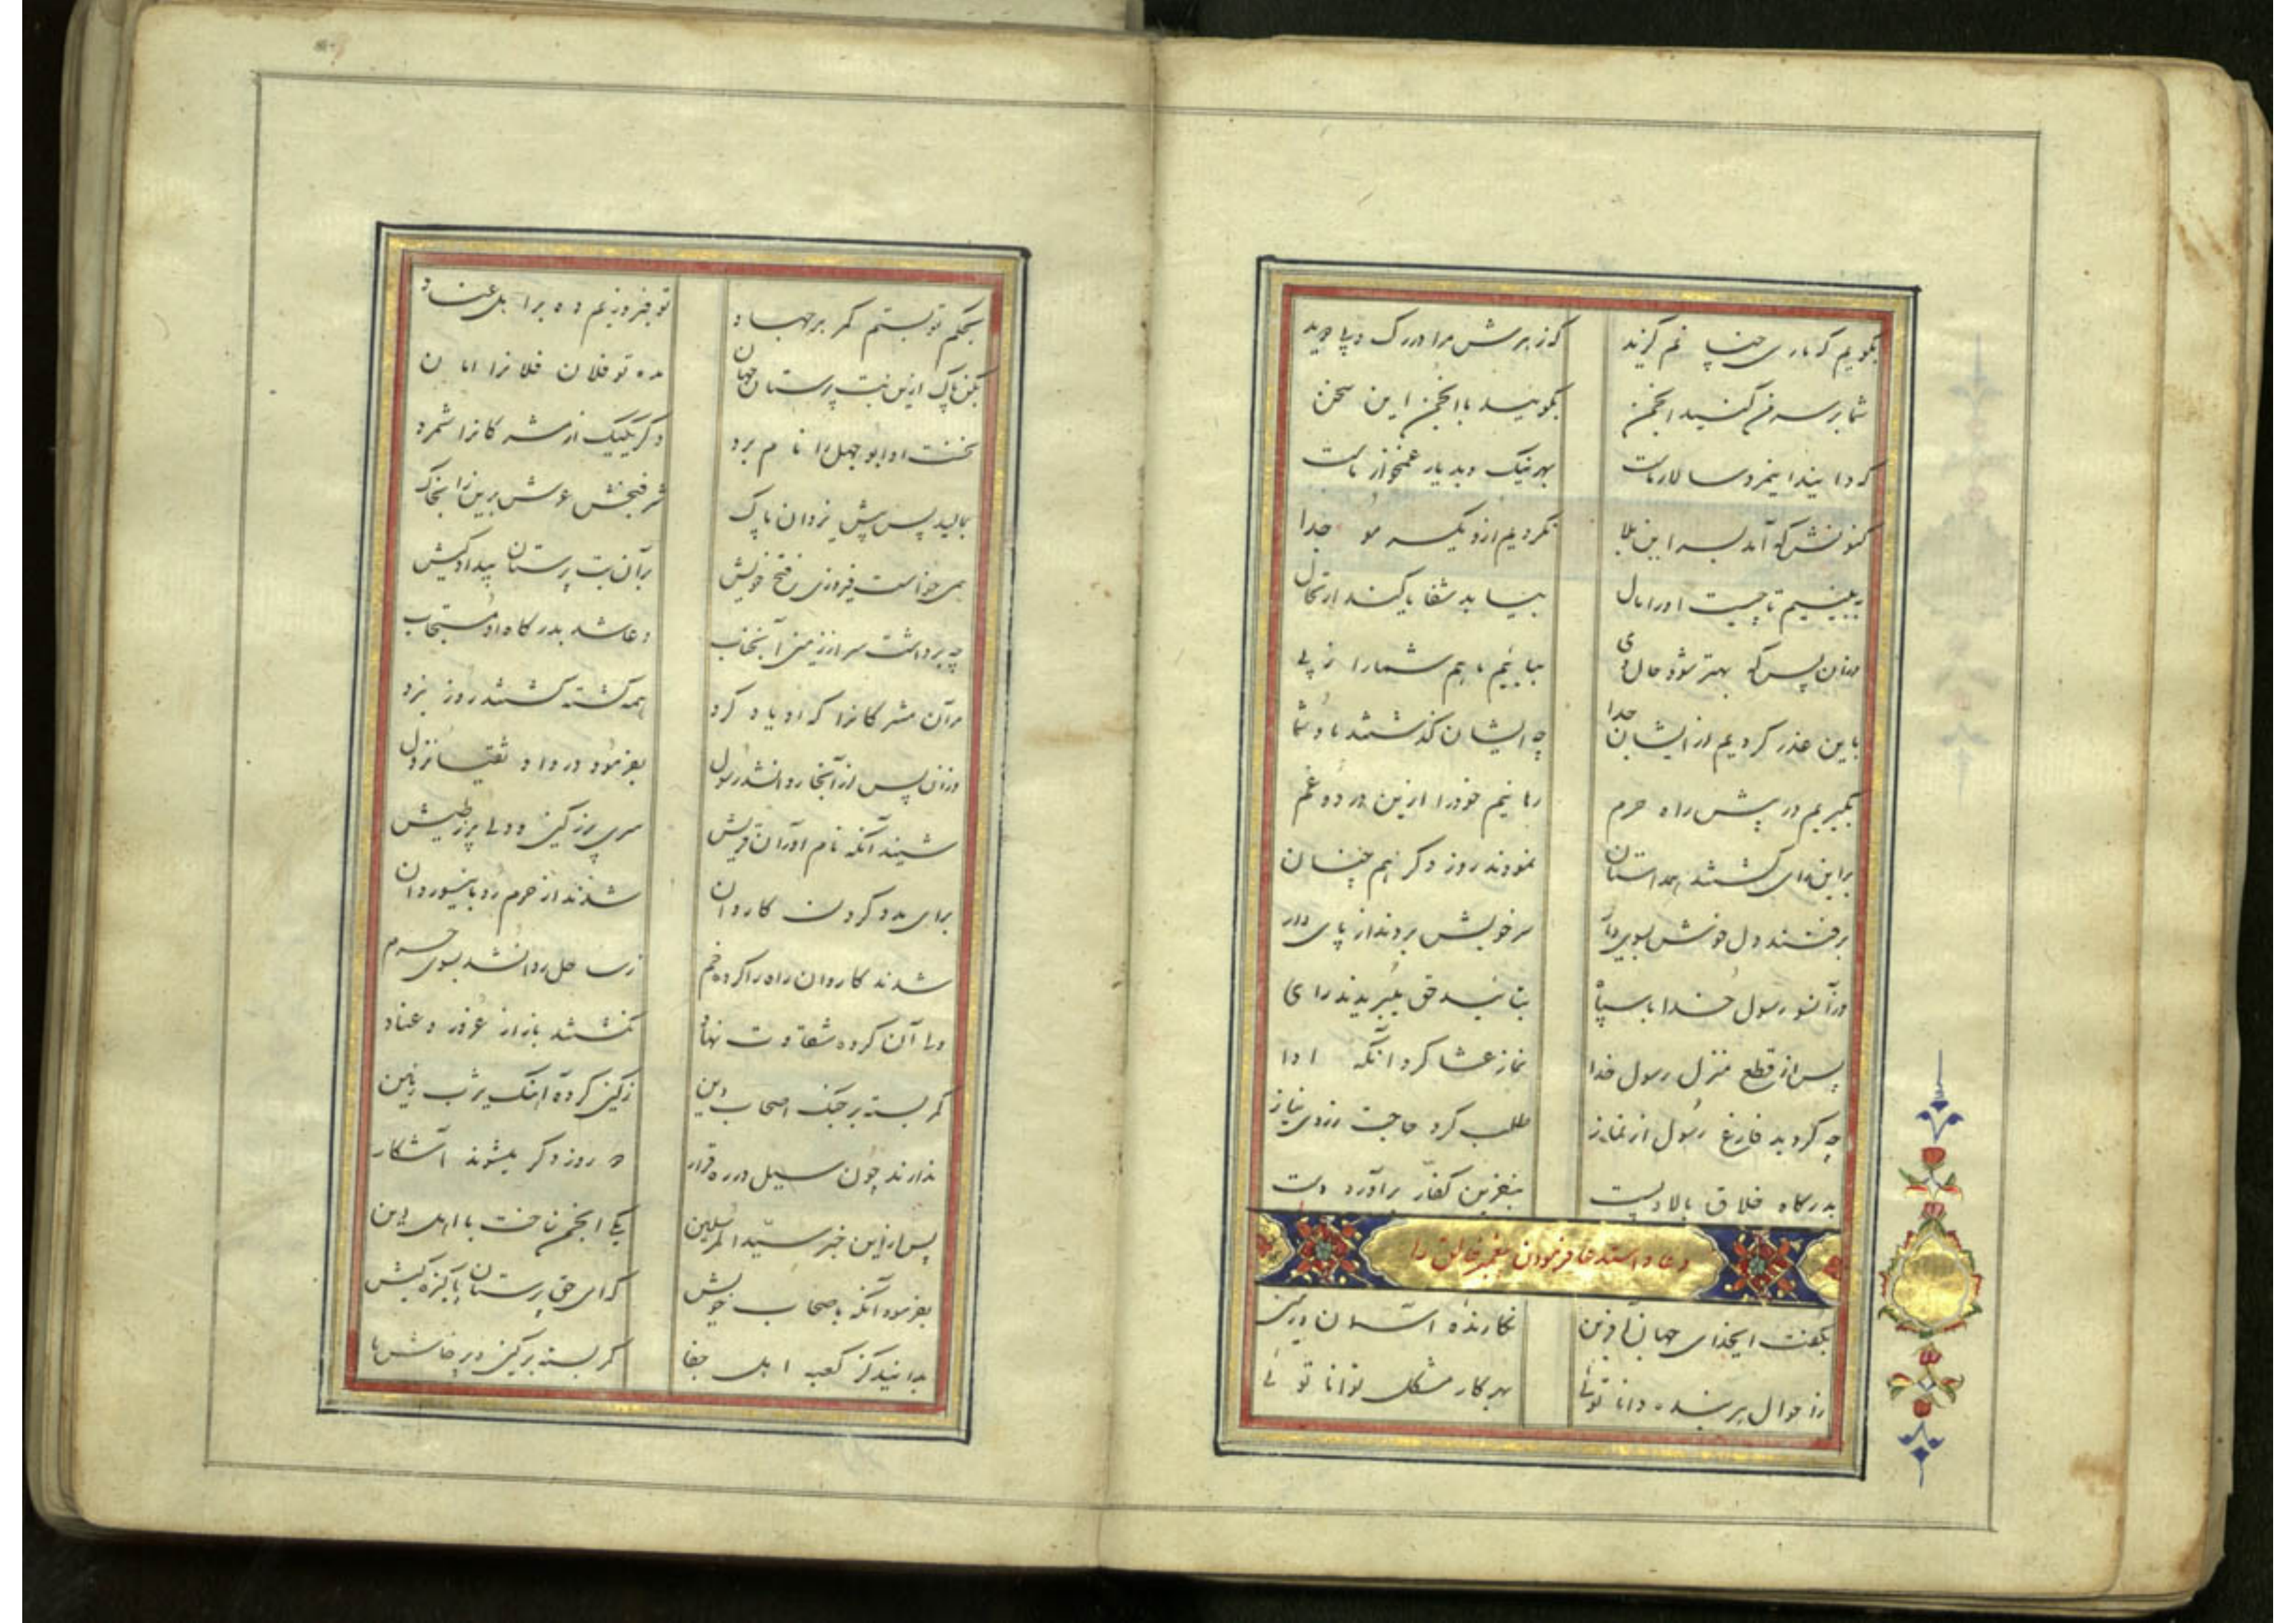 بگویم که ماری چنانم گزید
که زهرش مرا در رگ و پا دوید
شما بر سرم کنید انجمن
بگویید با انجمن این سخن
که دانید اینمرد سالار ماست
بهر نیک و بد یار غمخوار ماست
کنونش که آمد بسر این بلا
نگردیم ازو یکسر مو جدا
ببینیم تا چیست او را مال
بیابد شفا یا کند ارتحال
وزان پس که بهتر شود حال وی
بیاییم ما هم شما را ز پی
باین عذر گردیم از ایشان جدا
چه ایشان گذشتند ما و شما
بگیریم در پیش راه حرم
رهانیم خود را ازین درد و غم
براین رای گشتند همداستان
نمودند روز دگر هم چنان
برفتند دل خوش بسوی
سر خویش بردند از پای دار
وزآنسو رسول خدا با سپاه
بتایید حق ببریدند راه
پس از قطع منزل رسول خدا
نماز عشا کرد آنگه ادا
چه گردید فارغ رسول از نماز
طلب کرد حاجت ز بی نیاز
بدرگاه خلاق بالا و پست
بنفرین کفار برآورد دست
دعا و استدعا فرمودن پیغمبر خالق را
بگفت ایخدای جهان آفرین
نگارندهٔ آسمان و زمین
ز احوال هر بنده دانا توئی
بهر کار مشکل توانا توئی
بحکم تو بستم کمر بر جهاد
تو فیروزیم ده بر اهل عناد
بکن پاک ازین بت پرستان جهان
مده تو فلان فلان را امان
نخست او ابو جهل را نام برد
دگر یکیک از مشرکانرا شمرد
بمالید پس پیش یزدان پاک
شرفبخش عرش برین را بخاک
همی خواست فیروزی و فتح خویش
برآن بت پرستان بیدادکیش
چه برداشت سر از زمین آنجناب
دعا شد بدرگاه او مستجاب
مرآن مشرکانرا که او یاد کرد
همه کشته گشتند روز نبرد
وزان پس از آنجا روان شد رسول
بفرمود در وادقیا نزول
شنید آنگه نام آوران قریش
سری پر ز کین و دلی پر ز طیش
برای مدد کردن کاروان
شدند از حرم رو باینسو روان
شدند کاروان راه را کرده خم
ز ساحل روان شد بسوی حرم
ولی آن گروه شقاوت نهاد
نگشتند باز از غرور و عناد
کمر بسته بر جنگ اصحاب دین
ز کین کرده آهنگ یثرب زمین
ندارند چون سیل در ره قرار
روز دگر میشوند آشکار
پس از این خبر سید المرسلین
یکی انجمن ساخت با اهل دین
بفرمود آنگه باصحاب خویش
که ای حق پرستان پاکیزه کیش
بدانید کز کعبه اهل جفا
کمر بسته بر کین و پرخاش ما